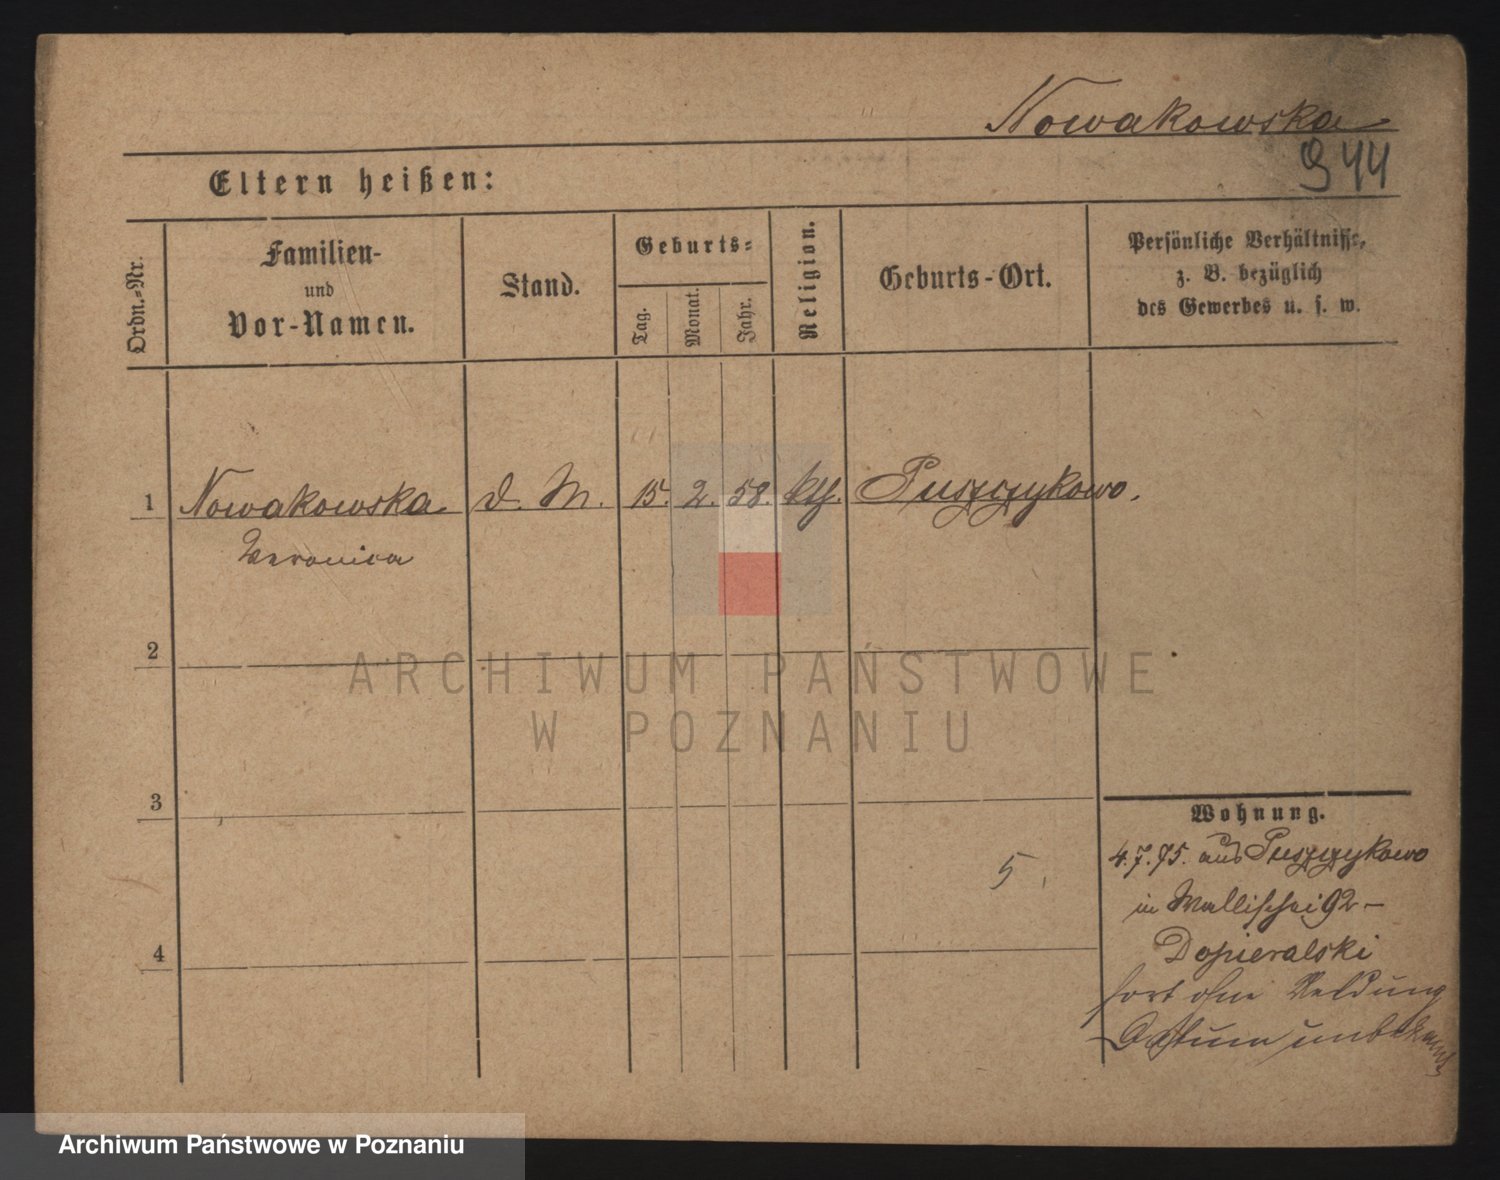 Nowakowska
944
Eltern heißen:
Ordn.=Nr.
Familien-
und
Vor-Namen.
Stand.
Geburts=
Tag.
Monat.
Jahr.
Religion.
Geburts-Ort.
Persönliche Verhältnisse,
z. B. bezüglich
des Gewerbes u. s. w.
1 Nowakowska d. M. 15. 2. 58. kth. Puszczykowo.
Veronica
2
3
4
5
Wohnung.
4.7.75. aus Puszczykowo
in Wallischei 92 -
Dopieralski
fort ohne Meldung
Datum unbekannt
ARCHIWUM PAŃSTWOWE
W POZNANIU
Archiwum Państwowe w Poznaniu